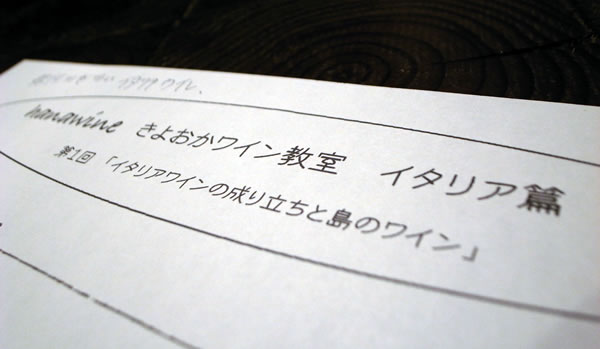 イタリアワイン、
hanawine きよおかワイン教室 イタリア篇
第1回 「イタリアワインの成り立ちと島のワイン」